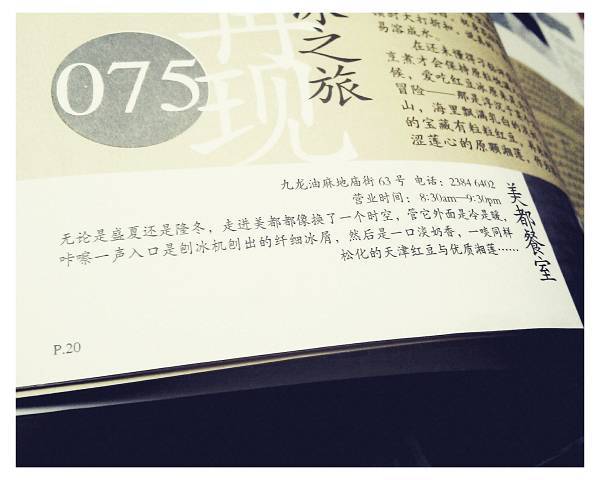 075
再现
之旅
时大打折扣，
易溶成水。
在还未懂得
烹煮才会保持原粒
候，爱吃红豆冰原来
冒险——那是浮沉于
山，海里飘满乳白的
的宝藏有粒粒红豆，
涩莲心的原颗湘莲，
九龙油麻地庙街 63 号 电话：2384 6402
营业时间： 8:30am—9:30pm
美都餐室
无论是盛夏还是隆冬，走进美都都像换了一个时空，管它外面是冷是暖，
咔嚓一声入口是刨冰机刨出的纤细冰屑，然后是一口淡奶香，一啖同样
松化的天津红豆与优质湘莲……
P.20